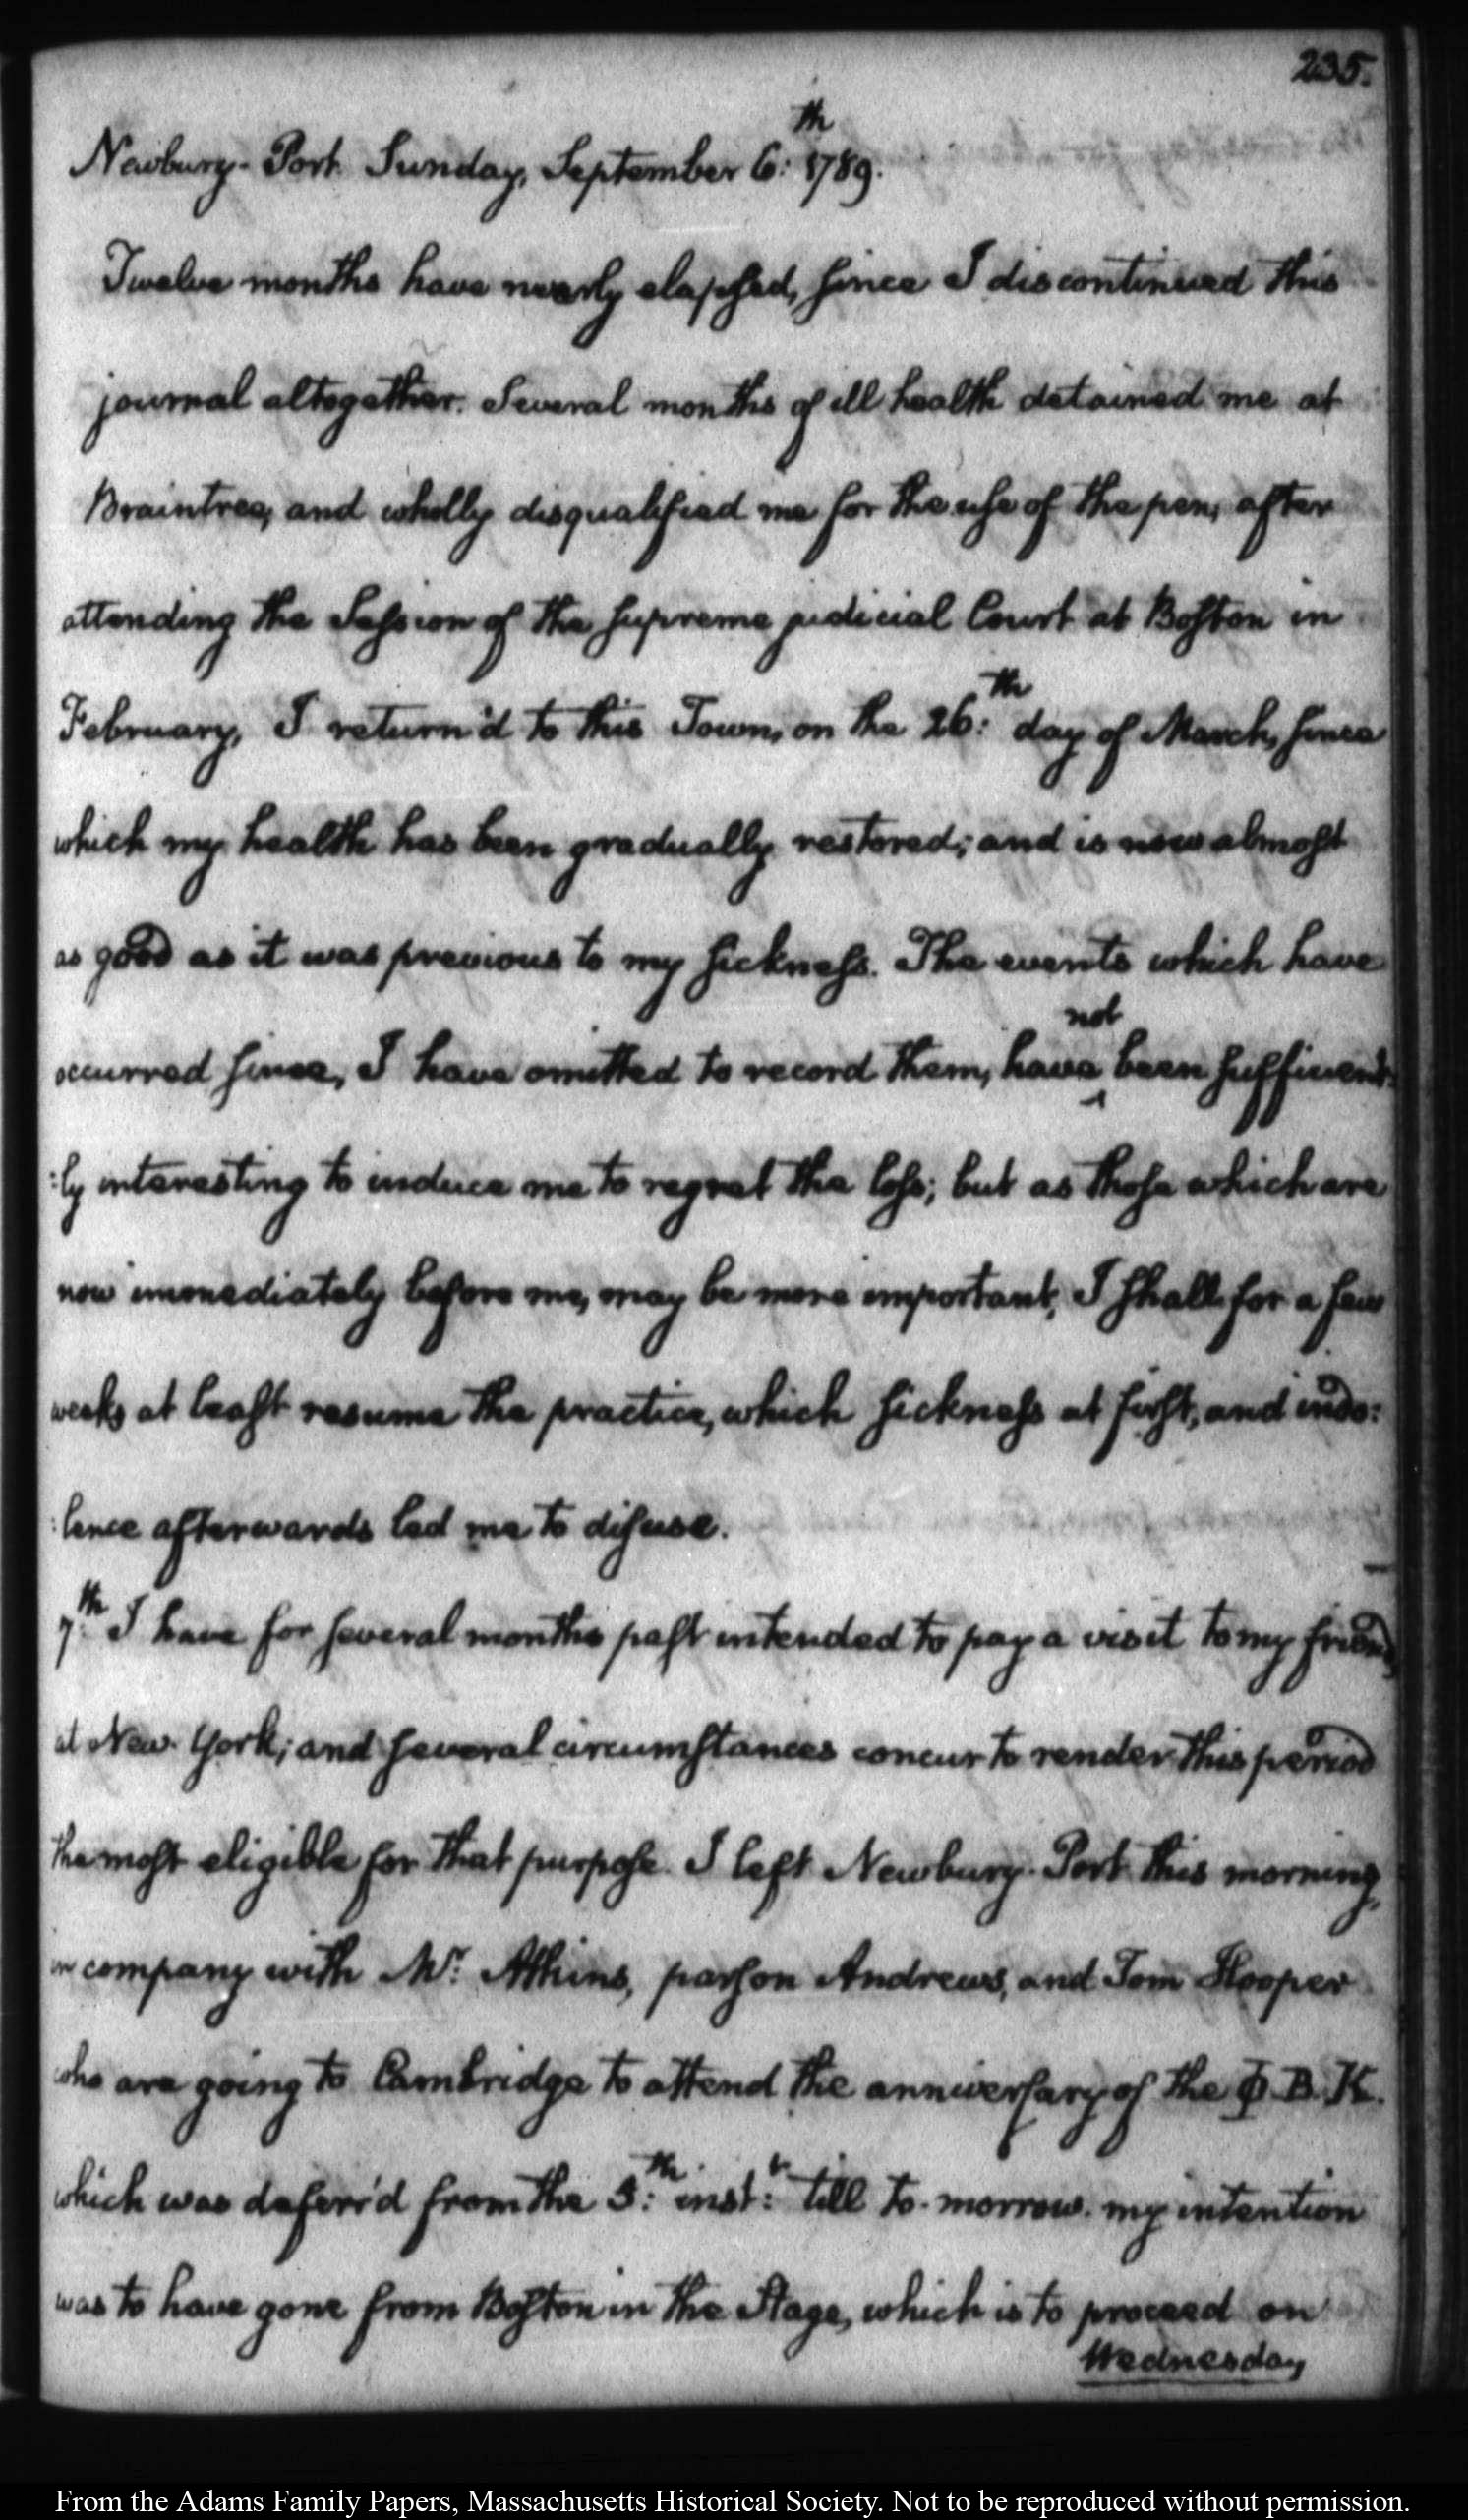 235.
Newbury-Port Sunday, September 6:th 1789.
Twelve months have nearly elapsed, since I discontinued this
journal altogether. Several months of ill health detained me at
Braintree, and wholly disqualified me for the use of the pen, after
attending the Session of the supreme judicial Court at Boston in
February, I return'd to this Town, on the 26:th day of March, since
which my health has been gradually restored; and is now almost
as good as it was previous to my sickness. The events which have
occurred since, I have omitted to record them, have not been sufficient-
:ly interesting to induce me to regret the loss; but as those which are
now immediately before me, may be more important, I shall for a few
weeks at least resume the practice, which sickness at first, and indo:
:lence afterwards led me to disuse.
7:th I have for several months past intended to pay a visit to my friends
at New York; and several circumstances concur to render this period
the most eligible for that purpose. I left Newbury-Port this morning,
in company with Mr: Atkins, parson Andrews, and Tom Hooper
who are going to Cambridge to attend the anniversary of the Φ.B.K.
which was deferr'd from the 5:th inst:t till to-morrow. my intention
was to have gone from Boston in the Stage, which is to proceed on
Wednesday
From the Adams Family Papers, Massachusetts Historical Society. Not to be reproduced without permission.